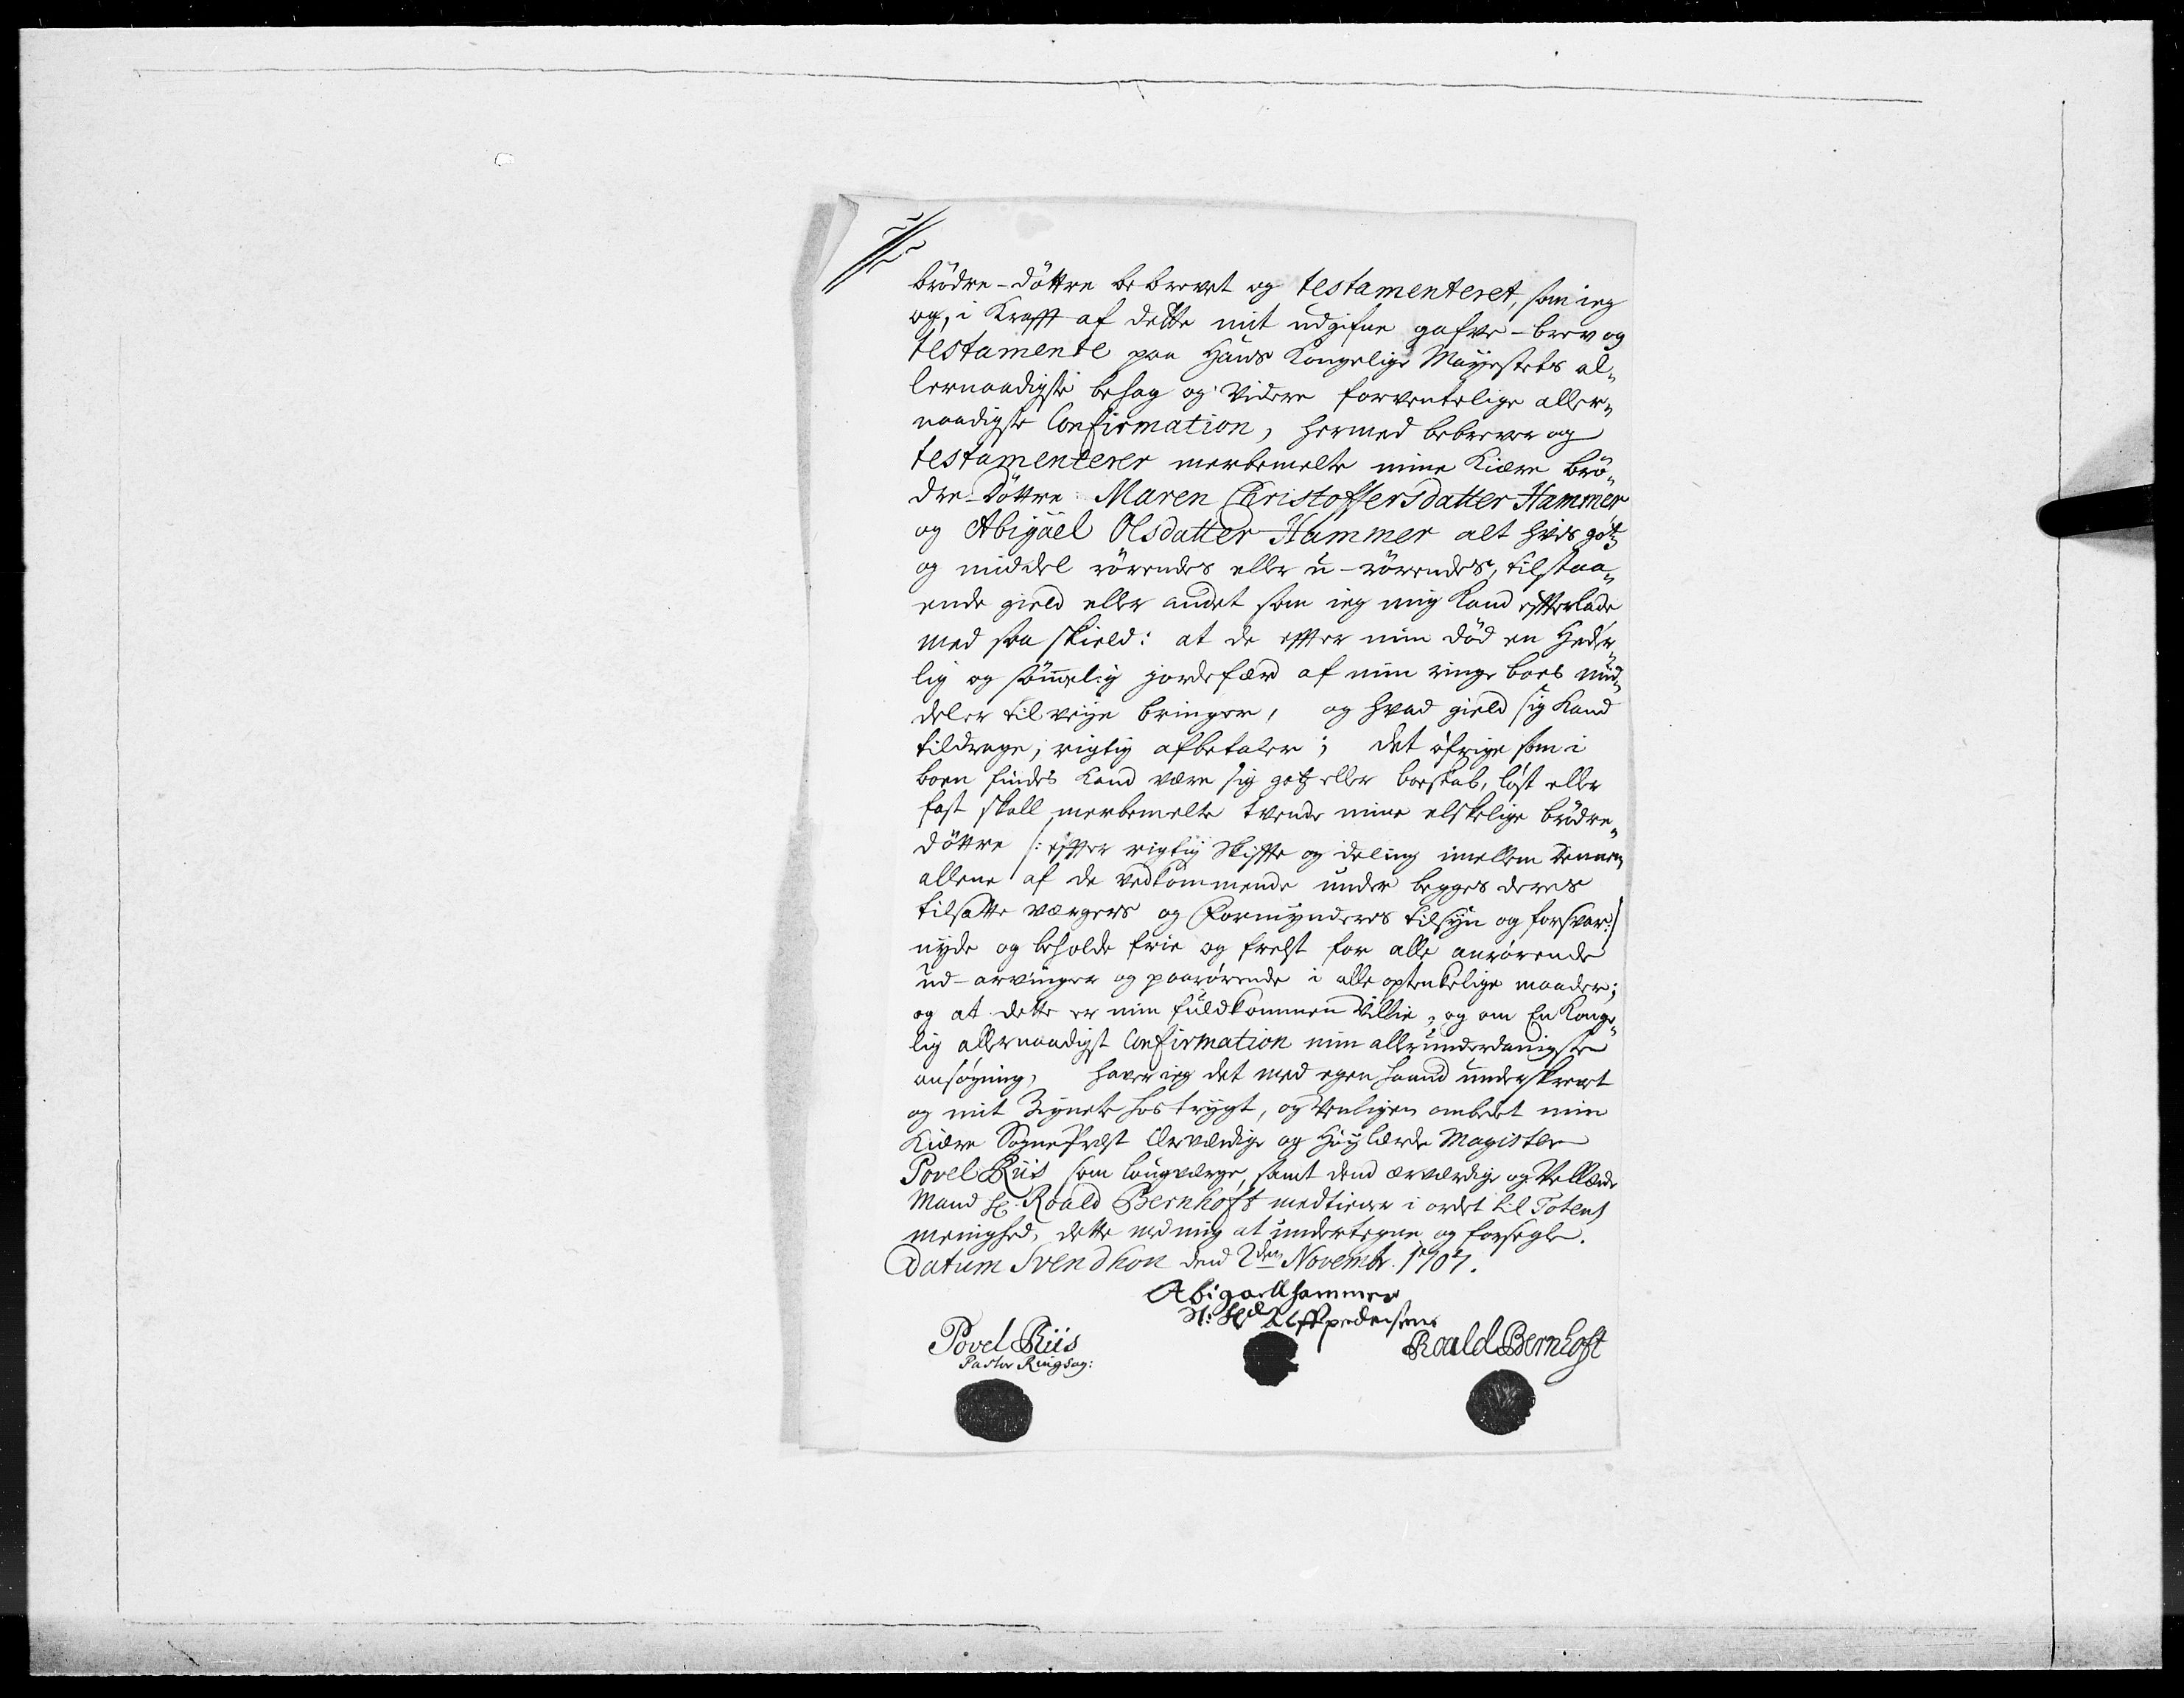 brödre-döttre bebrevet og testamenteret, som ieg
og, i Krafft af dette mit udgifne gafve-brev og
testamente paa Hans Kongelige Mayestets al„
lernaadigste behag og videre forventelige aller„
naadigste Confirmation, hermed bebrever og
testamenterer merbemelte mine Kiære brö„
dre-döttre Maren Christoffersdatter Hammer
og Abigäel Olsdatter Hammer alt hvis gotz
og middel rörendes eller u-rörendes, tilstaa„
ende gield eller andet som ieg mig Kand effterlade
med saa skield: at de effter min död en Heder„
lig og sömmelig jordefærd af min ringe boes mid„
deler til veije bringer, og hvad gield sig Kand
tildrage, rigtig afbetaler; det öfrige som i
boen findes Kand være sig gotz eller boeskab, löst eller
fast skall merbemelte tvende mine elskelige brödre„
döttre /: effter rigtig skiffte og deling imellem dennem
allene af de vedkommende under begges deres
tilsatte værgers og Formynderes tilsyn og forsvar:/
nyde og beholde frie og frelst for alle anrörende
ud-arvinger og paarörende i alle optenkelige maader;
og at dette er min fuldkommen Villie, og om En Konge„
lig allernaadigst Confirmation min allerunderdanigste
ansögning, haver ieg det med egen haand underskrevet
og mit Zignete hostrygt, og venligen ombedet min
Kiære SognePrest Ærværdige og Höylærde Magister
Povel Riis som laugværge, samt dend ærværdige og Vellærde
Mand Hr. Roald Bernhoft medtiener i ordet til Totens
meenighed, dette med mig at undertegne og forsegle.
Datum Svendhon dend 2den Novembr. 1707.
Abigaell hammer
Sl: Hr Pedersens
Povel Riis
Pastor Ringsag:
Roald Bernhoft